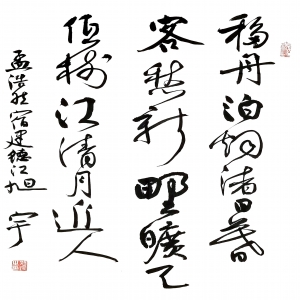 移舟泊烟渚日暮
客愁新野曠天
低树江清月近人
孟浩然宿建德江 旭宇